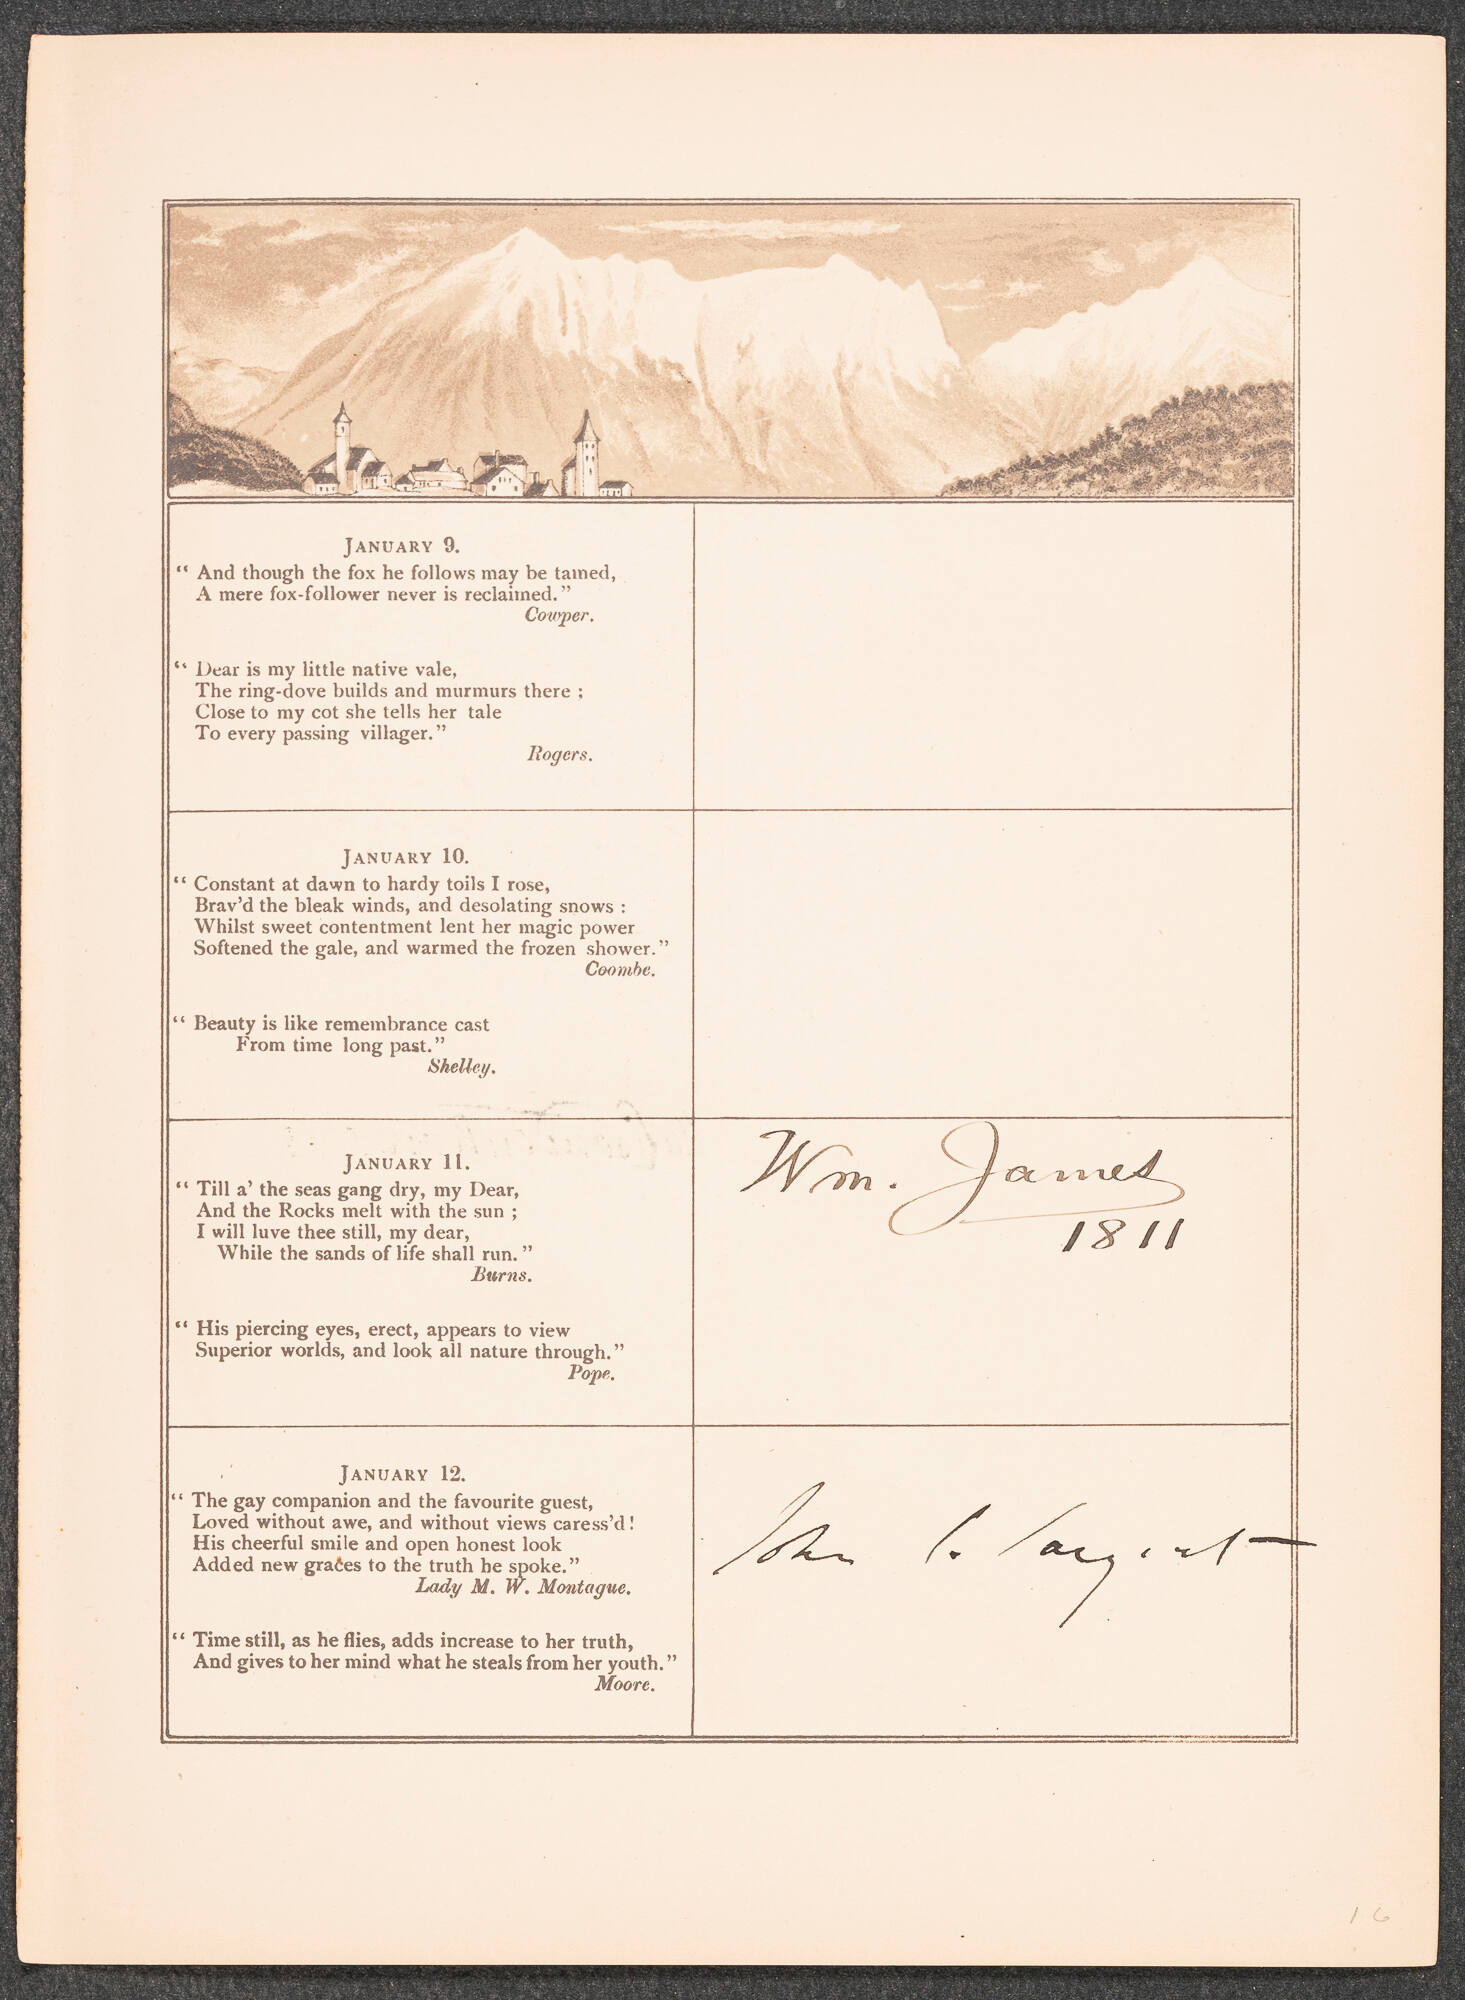 JANUARY 9.
“ And though the fox he follows may be tamed,
A mere fox-follower never is reclaimed.”
Cowper.
“ Dear is my little native vale,
The ring-dove builds and murmurs there ;
Close to my cot she tells her tale
To every passing villager.”
Rogers.
JANUARY 10.
“ Constant at dawn to hardy toils I rose,
Brav’d the bleak winds, and desolating snows :
Whilst sweet contentment lent her magic power
Softened the gale, and warmed the frozen shower.”
Coombe.
“ Beauty is like remembrance cast
From time long past.”
Shelley.
JANUARY 11.
“ Till a’ the seas gang dry, my Dear,
And the Rocks melt with the sun ;
I will luve thee still, my dear,
While the sands of life shall run.”
Burns.
“ His piercing eyes, erect, appears to view
Superior worlds, and look all nature through.”
Pope.
Wm. James
1811
JANUARY 12.
“ The gay companion and the favourite guest,
Loved without awe, and without views caress’d!
His cheerful smile and open honest look
Added new graces to the truth he spoke.”
Lady M. W. Montague.
“ Time still, as he flies, adds increase to her truth,
And gives to her mind what he steals from her youth.”
Moore.
John S. Sargent
16